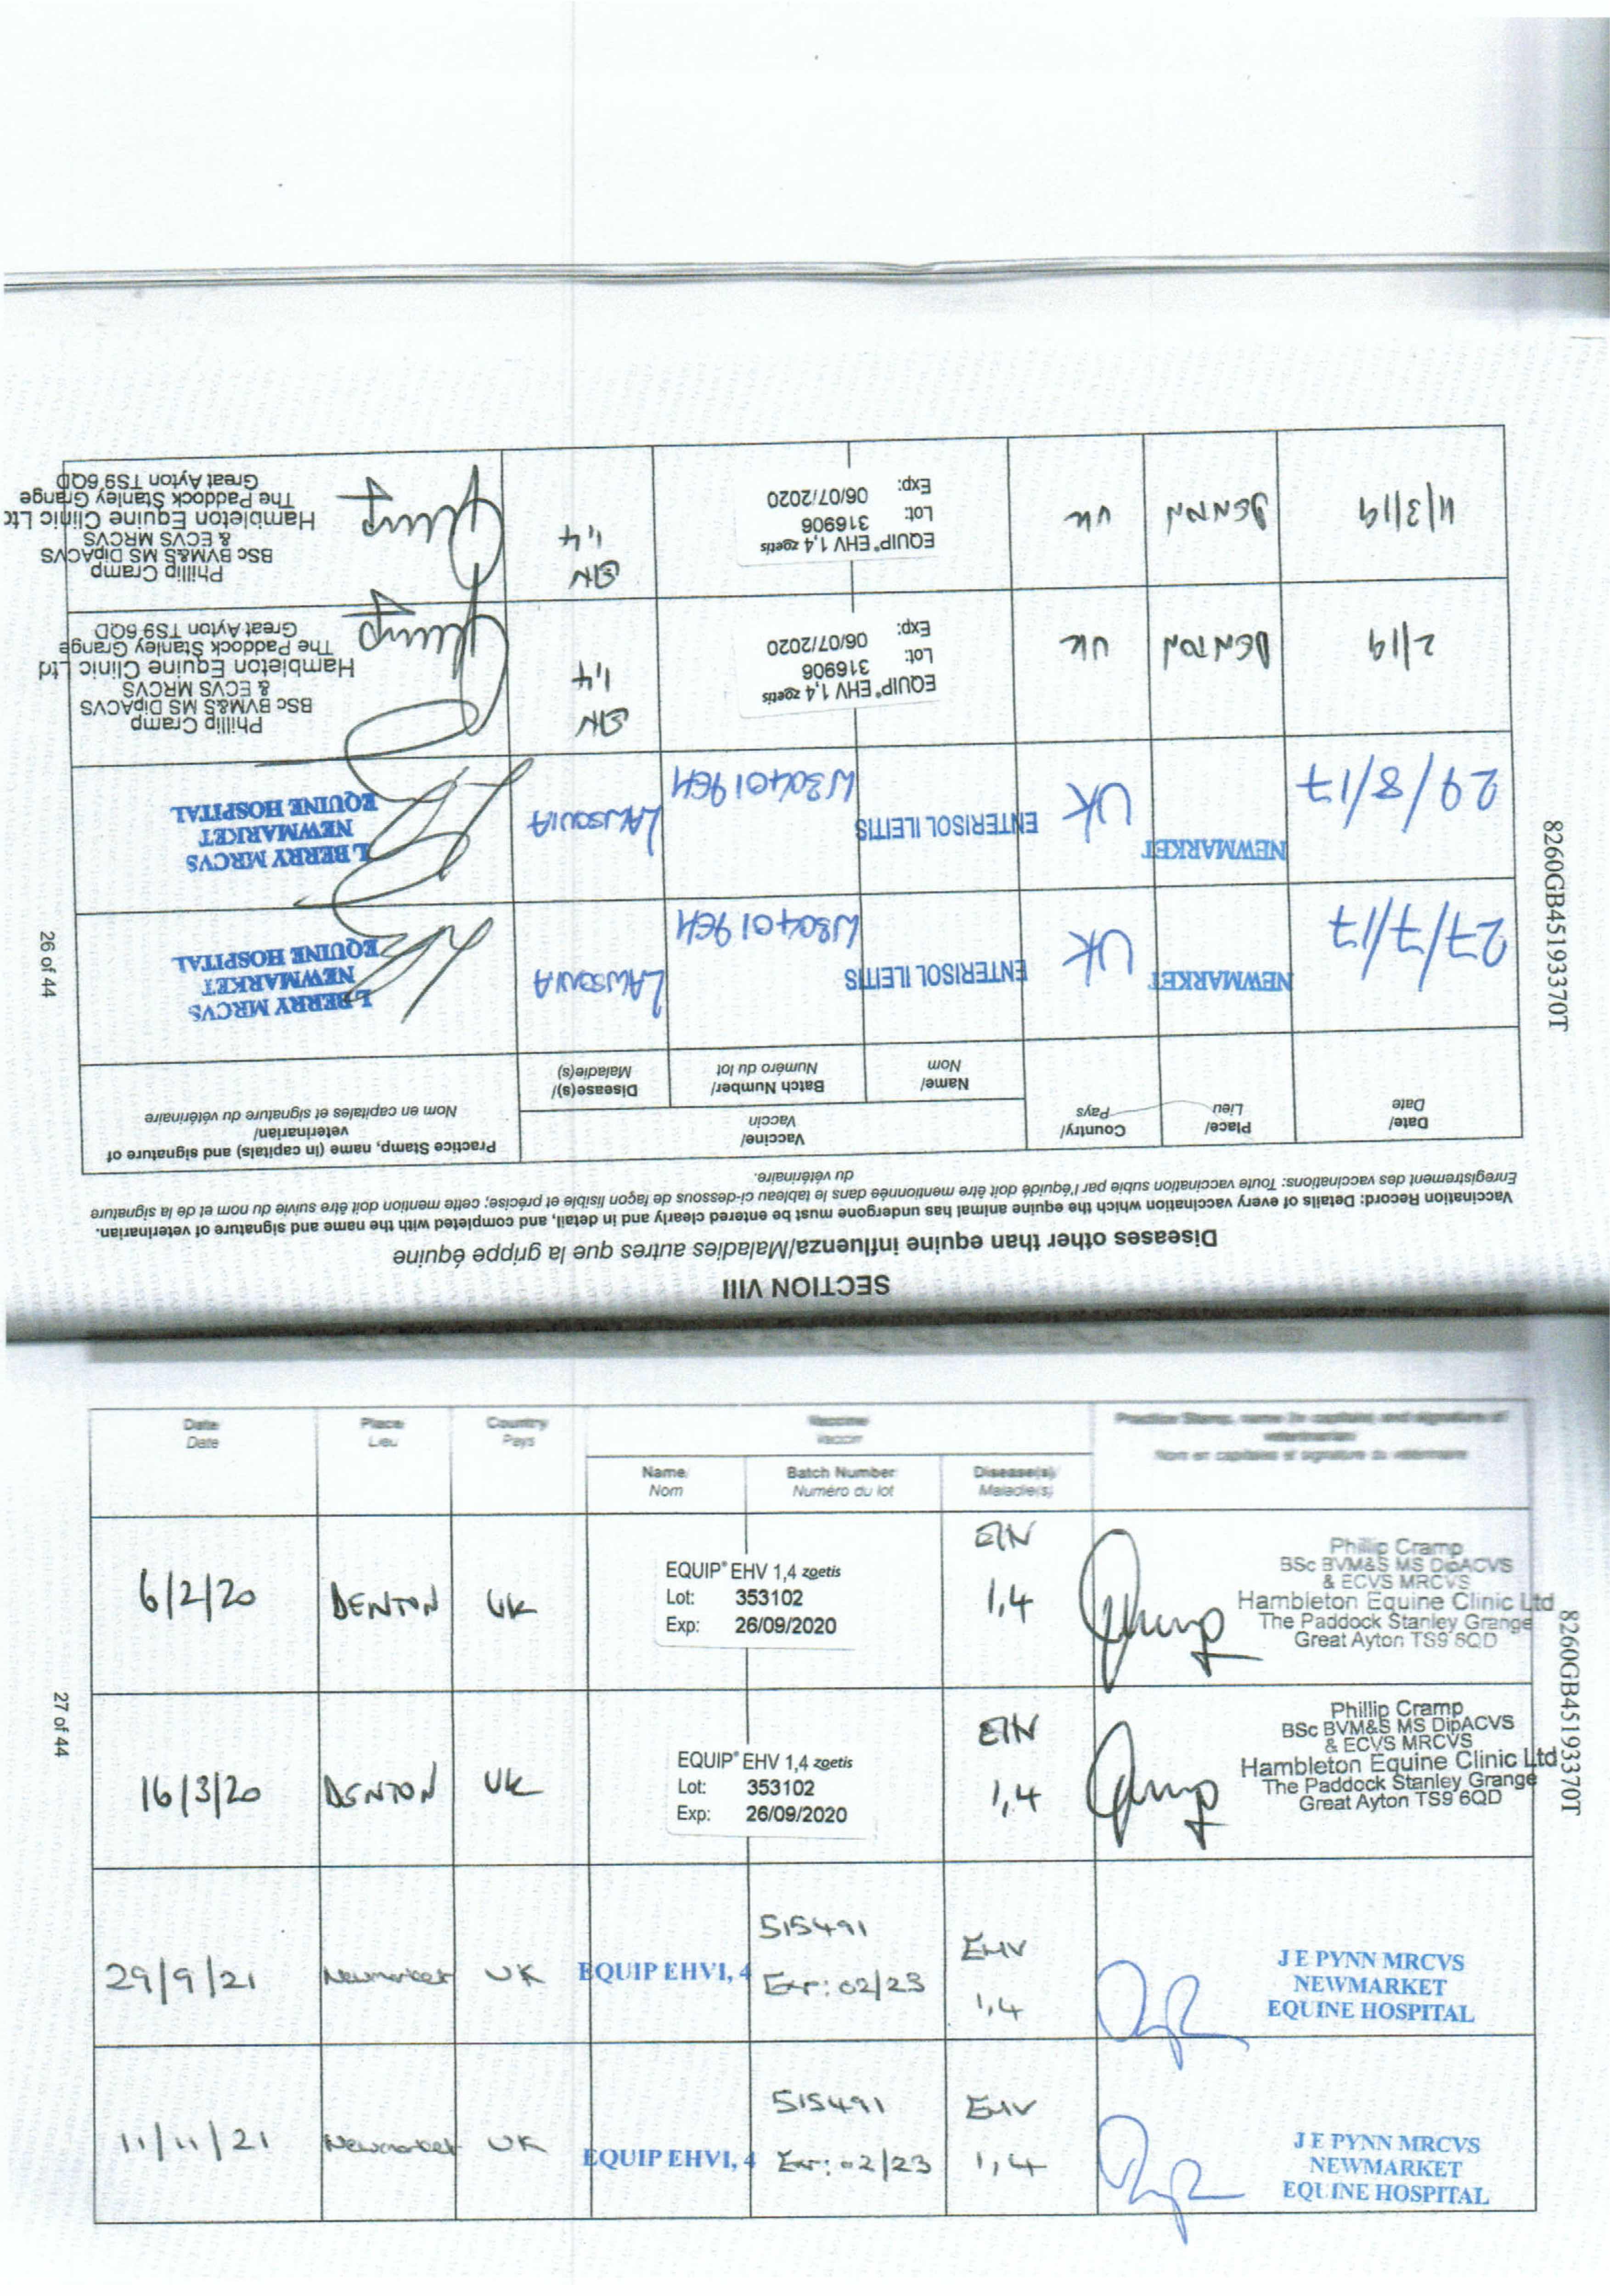 SECTION VIII
Diseases other than equine influenza/Maladies autres que la grippe équine
Vaccination Record: Details of every vaccination which the equine animal has undergone must be entered clearly and in detail, and completed with the name and signature of veterinarian.
Enregistrement des vaccinations: Toute vaccination subie par l'équidé doit être mentionnée dans le tableau ci-dessous de façon lisible et précise; cette mention doit être suivie du nom et de la signature
du vétérinaire.
Date/
Date
Place/
Lieu
Country/
Pays
Vaccine/
Vaccin
Name/
Nom
Batch Number/
Numéro du lot
Disease(s)/
Maladie(s)
Practice Stamp, name (in capitals) and signature of
veterinarian/
Nom en capitales et signature du vétérinaire
27/7/17
NEWMARKET
UK
ENTERISOL ILEITIS
LAWSONIA
L BERRY MRCVS
NEWMARKET
EQUINE HOSPITAL
29/8/17
NEWMARKET
UK
ENTERISOL ILEITIS
LAWSONIA
L BERRY MRCVS
NEWMARKET
EQUINE HOSPITAL
2/19
DENTON
UK
EQUIP® EHV 1,4 zoetis
Lot: 316906
Exp: 06/07/2020
1,4
Phillip Cramp
BSc BVM&S MS DipACVS
& ECVS MRCVS
Hambleton Equine Clinic Ltd
The Paddock Stanley Grange
Great Ayton TS9 6QD
11/3/19
DENTON
UK
EQUIP® EHV 1,4 zoetis
Lot: 316906
Exp: 06/07/2020
1,4
Phillip Cramp
BSc BVM&S MS DipACVS
& ECVS MRCVS
Hambleton Equine Clinic Ltd
The Paddock Stanley Grange
Great Ayton TS9 6QD
26 of 44
8260GB45193370T
Date
Date
Place
Lieu
Country
Pays
Vaccine
Vaccin
Name
Nom
Batch Number
Numéro du lot
Disease(s)
Maladie(s)
Practice Stamp, name (in capitals) and signature of
veterinarian
Nom en capitales et signature du vétérinaire
6/2/20
DENTON
UK
EQUIP® EHV 1,4 zoetis
Lot: 353102
Exp: 26/09/2020
1,4
Phillip Cramp
BSc BVM&S MS DipACVS
& ECVS MRCVS
Hambleton Equine Clinic Ltd
The Paddock Stanley Grange
Great Ayton TS9 6QD
16/3/20
DENTON
UK
EQUIP® EHV 1,4 zoetis
Lot: 353102
Exp: 26/09/2020
1,4
Phillip Cramp
BSc BVM&S MS DipACVS
& ECVS MRCVS
Hambleton Equine Clinic Ltd
The Paddock Stanley Grange
Great Ayton TS9 6QD
29/9/21
Newmarket
UK
EQUIP EHV1, 4
515491
Exp: 02/23
EHV
1,4
J E PYNN MRCVS
NEWMARKET
EQUINE HOSPITAL
11/11/21
Newmarket
UK
EQUIP EHV1, 4
515491
Exp: 02/23
EHV
1,4
J E PYNN MRCVS
NEWMARKET
EQUINE HOSPITAL
27 of 44
8260GB45193370T